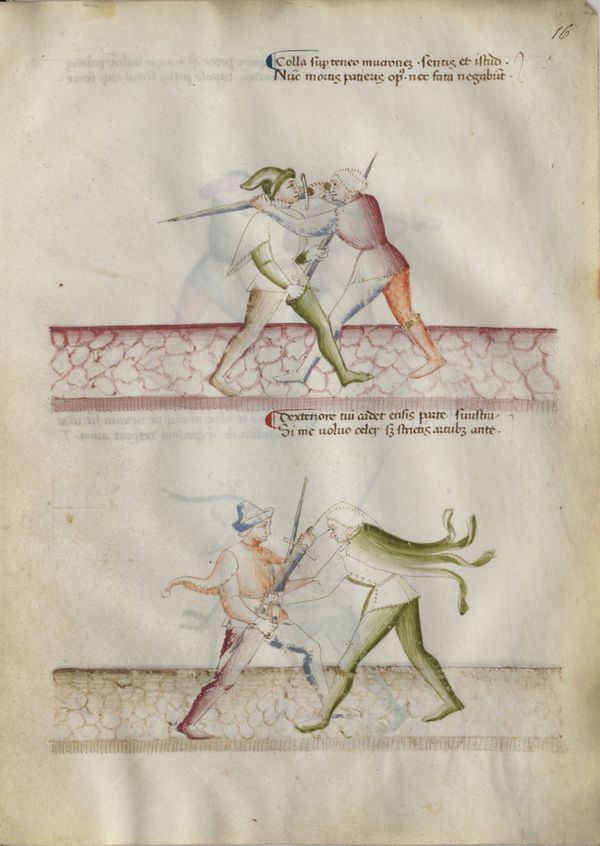 16
Colla sup teneo mucronez · sentis et istud ·
Nunc mortis patieris opus · nec fata negabunt ·
Dexteriore tui cadet ensis parte / sinistra ·
Si me voluo celer sz strictis artubz ante ·